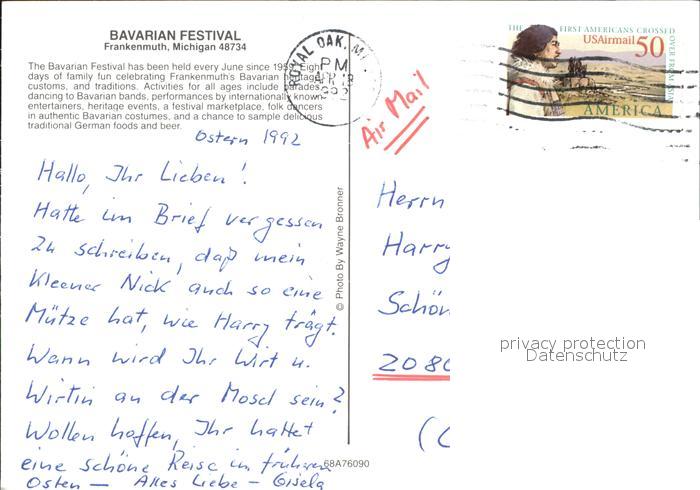 BAVARIAN FESTIVAL
Frankenmuth, Michigan 48734
The Bavarian Festival has been held every June since 1959. Eight
days of family fun celebrating Frankenmuth's Bavarian heritage,
customs, and traditions. Activities for all ages include parades,
dancing to Bavarian bands, performances by internationally known
entertainers, heritage events, a festival marketplace, folk dancers
in authentic Bavarian costumes, and a chance to sample delicious
traditional German foods and beer.
Ostern 1992
Hallo, Ihr Lieben!
Hatte im Brief vergessen
zu schreiben, daß mein
Kleener Nick auch so eine
Mütze hat, wie Harry trägt.
Wann wird Ihr Wirt u.
Wirtin an der Mosel sein?
Wollen hoffen, Ihr hattet
eine schöne Reise im früheren
Osten — Alles Liebe - Gisela
68A76090
© Photo By Wayne Bronner
ROYAL OAK, MI
PM
APR
Air Mail
THE FIRST AMERICANS CROSSED
OVER FROM
USAirmail 50
AMERICA
Herrn
Harry
Schön
208
privacy protection
Datenschutz